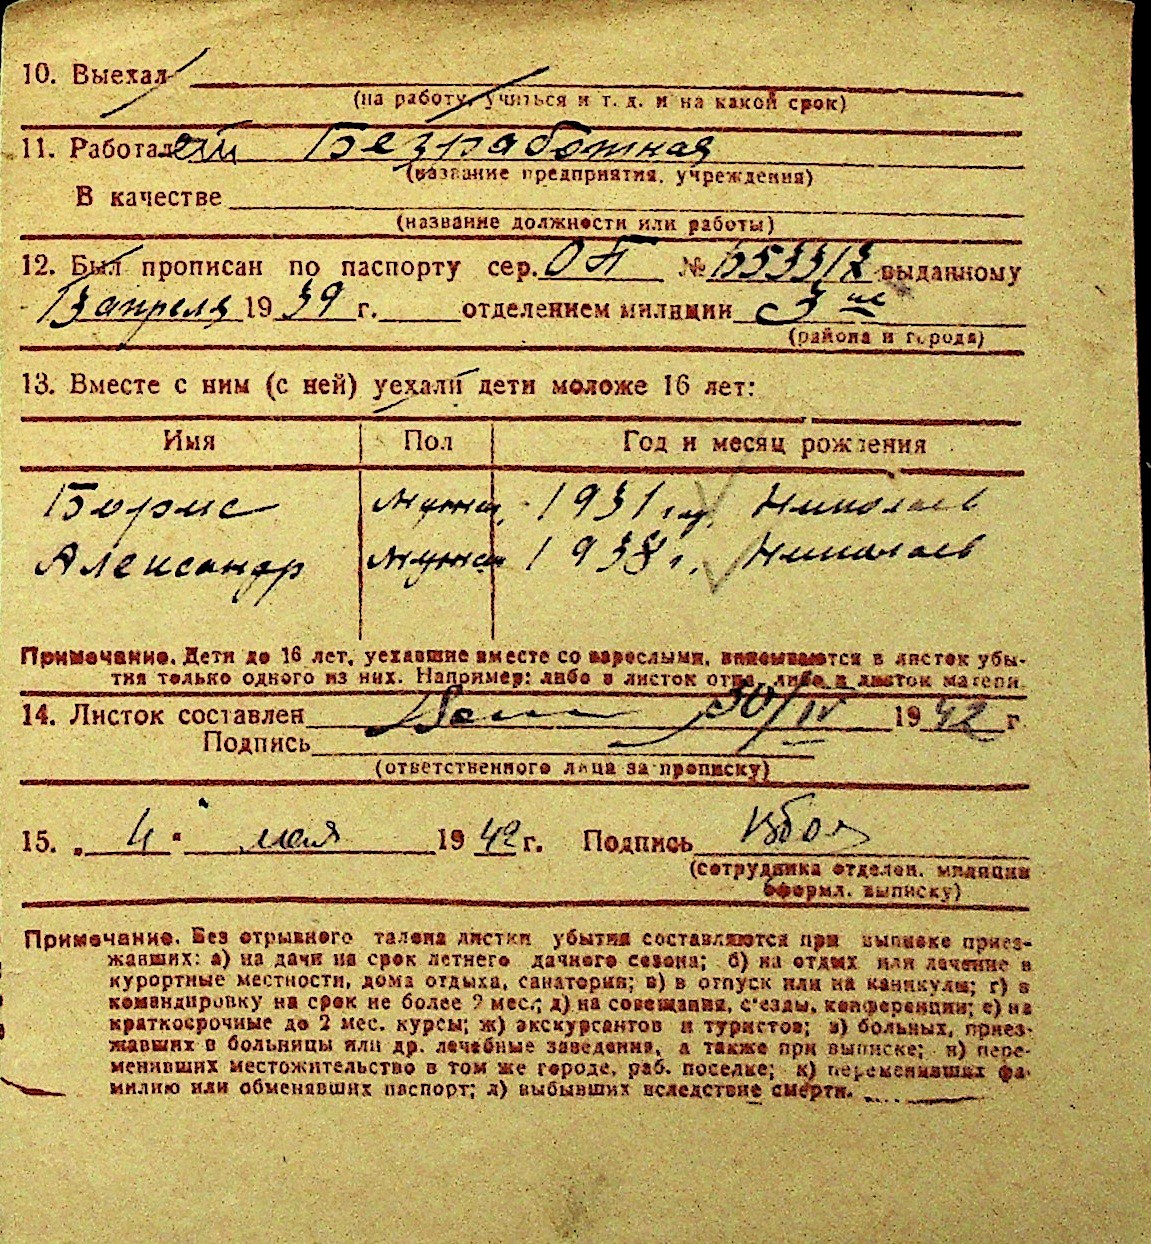 10. Выехал
(на работу, учиться и т. д. и на какой срок)
11. Работал Безработная
(название предприятия, учреждения)
В качестве
(название должности или работы)
12. Был прописан по паспорту сер. ОП № 653312 выданному
13 апреля 19 39 г. отделением милиции с 3
(района и города)
13. Вместе с ним (с ней) уехали дети моложе 16 лет:
Имя Пол Год и месяц рождения
Борис мужск. 1931 г. Николаев
Александр мужск 1938 г. Николаев
Примечание. Дети до 16 лет, уехавшие вместе со взрослыми, вписываются в листок убы-
тия только одного из них. Например: либо в листок отца, либо в листок матери
14. Листок составлен 30/IV 19 42 г
Подпись
(ответственного лица за прописку)
15. „ 4 " мая 19 42 г. Подпись
(сотрудника отделен. милиции
оформл. выписку)
Примечание. Без отрывного талона листки убытия составляются при выписке приез-
жавших: а) на дачи на срок летнего дачного сезона; б) на отдых или лечение в
курортные местности, дома отдыха, санатории; в) в отпуск или на каникулы; г) в
командировку на срок не более 2 мес.; д) на совещания, с'езды, конференции; е) на
краткосрочные до 2 мес. курсы; ж) экскурсантов и туристов; з) больных, приез-
жавших в больницы или др. лечебные заведения, а также при выписке; и) пере-
менивших местожительство в том же городе, раб. поселке; к) переменивших фа-
милию или обменявших паспорт; л) выбывших вследствие смерти.